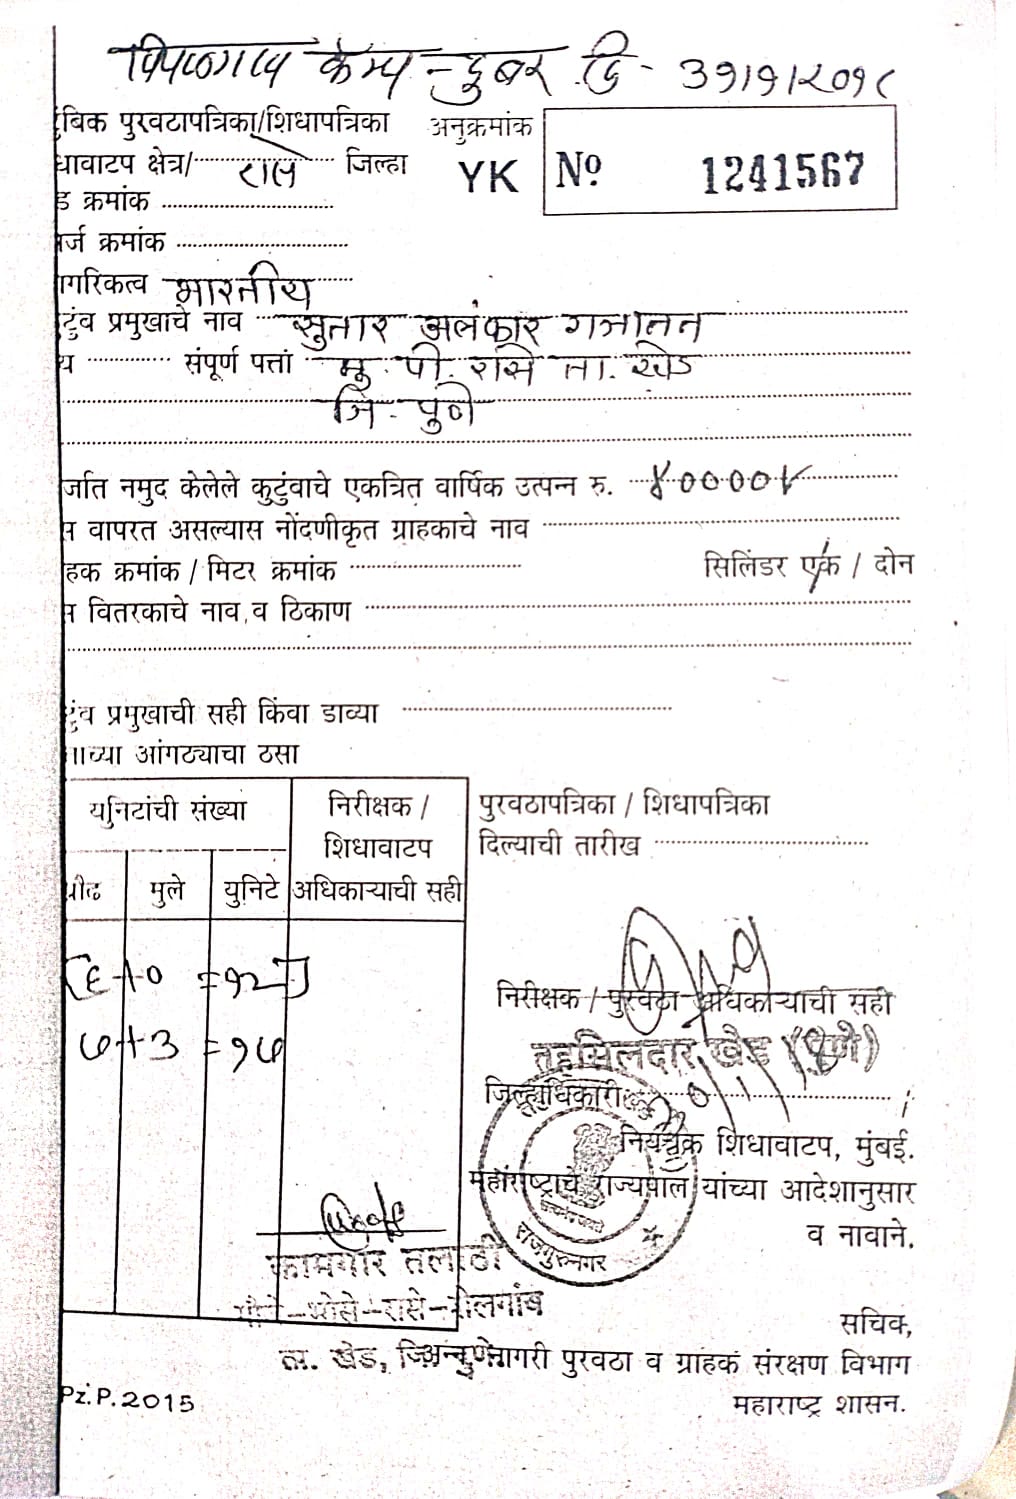 पिंपळगाव केम्प नंबर दि - ३१/१/२०१८
ुंबिक पुरवठापत्रिका/शिधापत्रिका अनुक्रमांक
धावाटप क्षेत्र/ रासे जिल्हा YK Nº 1241567
ड क्रमांक
र्ज क्रमांक
गरिकत्व भारतीय
टुंब प्रमुखाचे नाव सुतार अलंकार गजानन
य संपूर्ण पत्तां मु. पो. रासे ता. खेड
जि. पुणे
र्जात नमुद केलेले कुटुंवाचे एकत्रित वार्षिक उत्पन्न रु. ४००००
स वापरत असल्यास नोंदणीकृत ग्राहकाचे नाव
हक क्रमांक / मिटर क्रमांक सिलिंडर एक / दोन
स वितरकाचे नाव व ठिकाण
टुंब प्रमुखाची सही किंवा डाव्या
ाच्या आंगठ्याचा ठसा
युनिटांची संख्या निरीक्षक / शिधावाटप अधिकाऱ्याची सही
प्रौढ मुले युनिटे
[६+० =१२]
७+३ =१७
पुरवठापत्रिका / शिधापत्रिका
दिल्याची तारीख
निरीक्षक / पुरवठा अधिकाऱ्याची सही
तहसिलदार खेड (पुणे)
जिल्हाधिकारी
नियंत्रक शिधावाटप, मुंबई.
महाराष्ट्राचे राज्यपाल यांच्या आदेशानुसार
व नावाने.
राजगुरुनगर
कामगार तलाठी
रासे
सचिव,
ता. खेड, जि. पुणे
अन्न नागरी पुरवठा व ग्राहक संरक्षण विभाग
महाराष्ट्र शासन.
Pz.P.2015